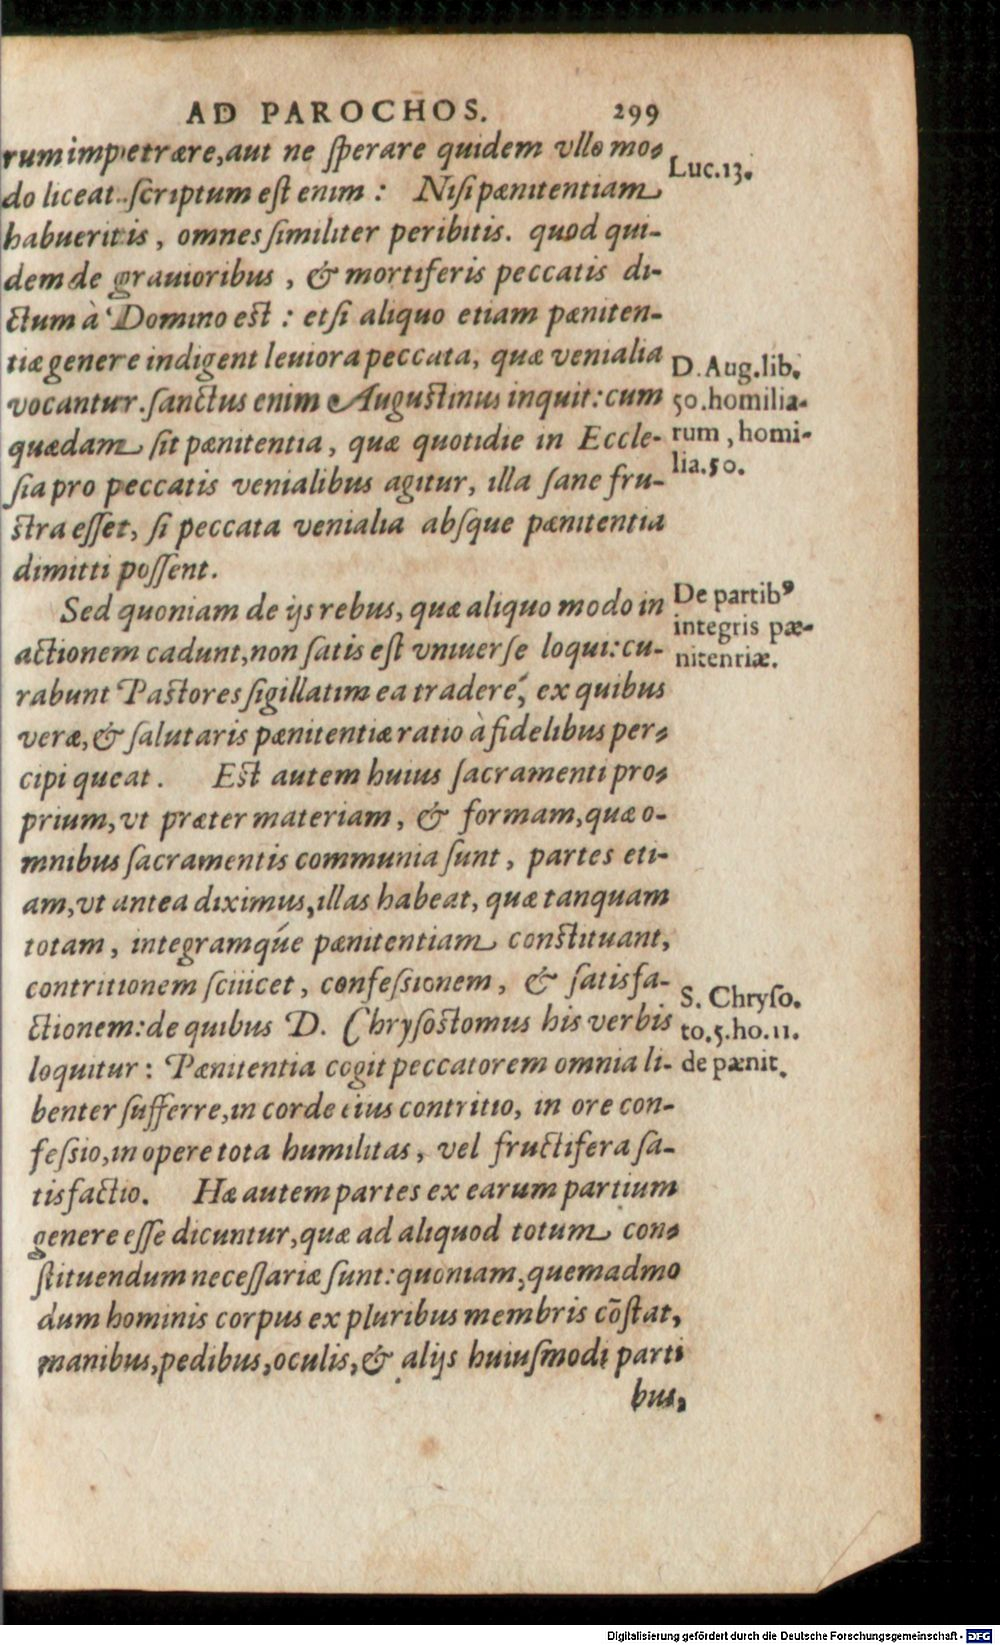 AD PAROCHOS. 299
rum impetrare, aut ne ſperare quidem vllo mo-
do liceat. ſcriptum eſt enim : Niſi pænitentiam
habueritis , omnes ſimiliter peribitis. quod qui-
dem de grauioribus , & mortiferis peccatis di-
ctum à Domino eſt : etſi aliquo etiam pæniten-
tiæ genere indigent leuiora peccata, quæ venialia
vocantur. ſanctus enim Auguſtinus inquit: cum
quædam ſit pænitentia , quæ quotidie in Eccle-
ſia pro peccatis venialibus agitur, illa ſane fru-
ſtra eſſet, ſi peccata venialia abſque pænitentia
dimitti poſſent.
Luc.13.
D. Aug.lib.
50.homilia-
rum , homi-
lia.50.
Sed quoniam de ijs rebus, quæ aliquo modo in
actionem cadunt, non ſatis eſt vniuerſe loqui: cu-
rabunt Paſtores ſigillatim ea tradere, ex quibus
veræ, & ſalutaris pænitentiæ ratio à fidelibus per-
cipi queat . Eſt autem huius ſacramenti pro-
prium, vt præter materiam , & formam, quæ o-
mnibus ſacramentis communia ſunt , partes eti-
am, vt antea diximus, illas habeat, quæ tanquam
totam , integramq́ue pænitentiam conſtituant,
contritionem ſcilicet , confeſsionem , & ſatisfa-
ctionem: de quibus D. Chryſoſtomus his verbis
loquitur : Pænitentia cogit peccatorem omnia li-
benter ſufferre, in corde eius contritio, in ore con-
feſsio, in opere tota humilitas , vel fructifera ſa-
tisfactio. Hæ autem partes ex earum partium
genere eſſe dicuntur, quæ ad aliquod totum con-
ſtituendum neceſſariæ ſunt: quoniam, quemadmo
dum hominis corpus ex pluribus membris cõſtat,
manibus, pedibus, oculis, & alijs huiuſmodi parti
bus,
De partibꝰ
integris pæ-
nitentiæ.
S. Chryſo.
to.5.ho.11.
de pænit.
Digitalisierung gefördert durch die Deutsche Forschungsgemeinschaft - DFG